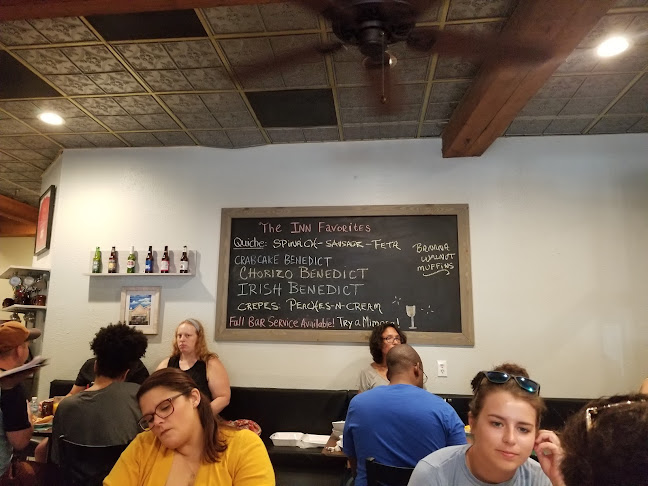 The INN Favorites
Quiche: SPINACH-SAUSAGE-FETA
CRABCAKE BENEDICT
CHORIZO BENEDICT
IRISH BENEDICT
CREPES: PEACHES-N-CREAM
Full BAR SERVICE AVAILABLE! TRY A MIMOSA!
BANANA
WALNUT
MUFFINS